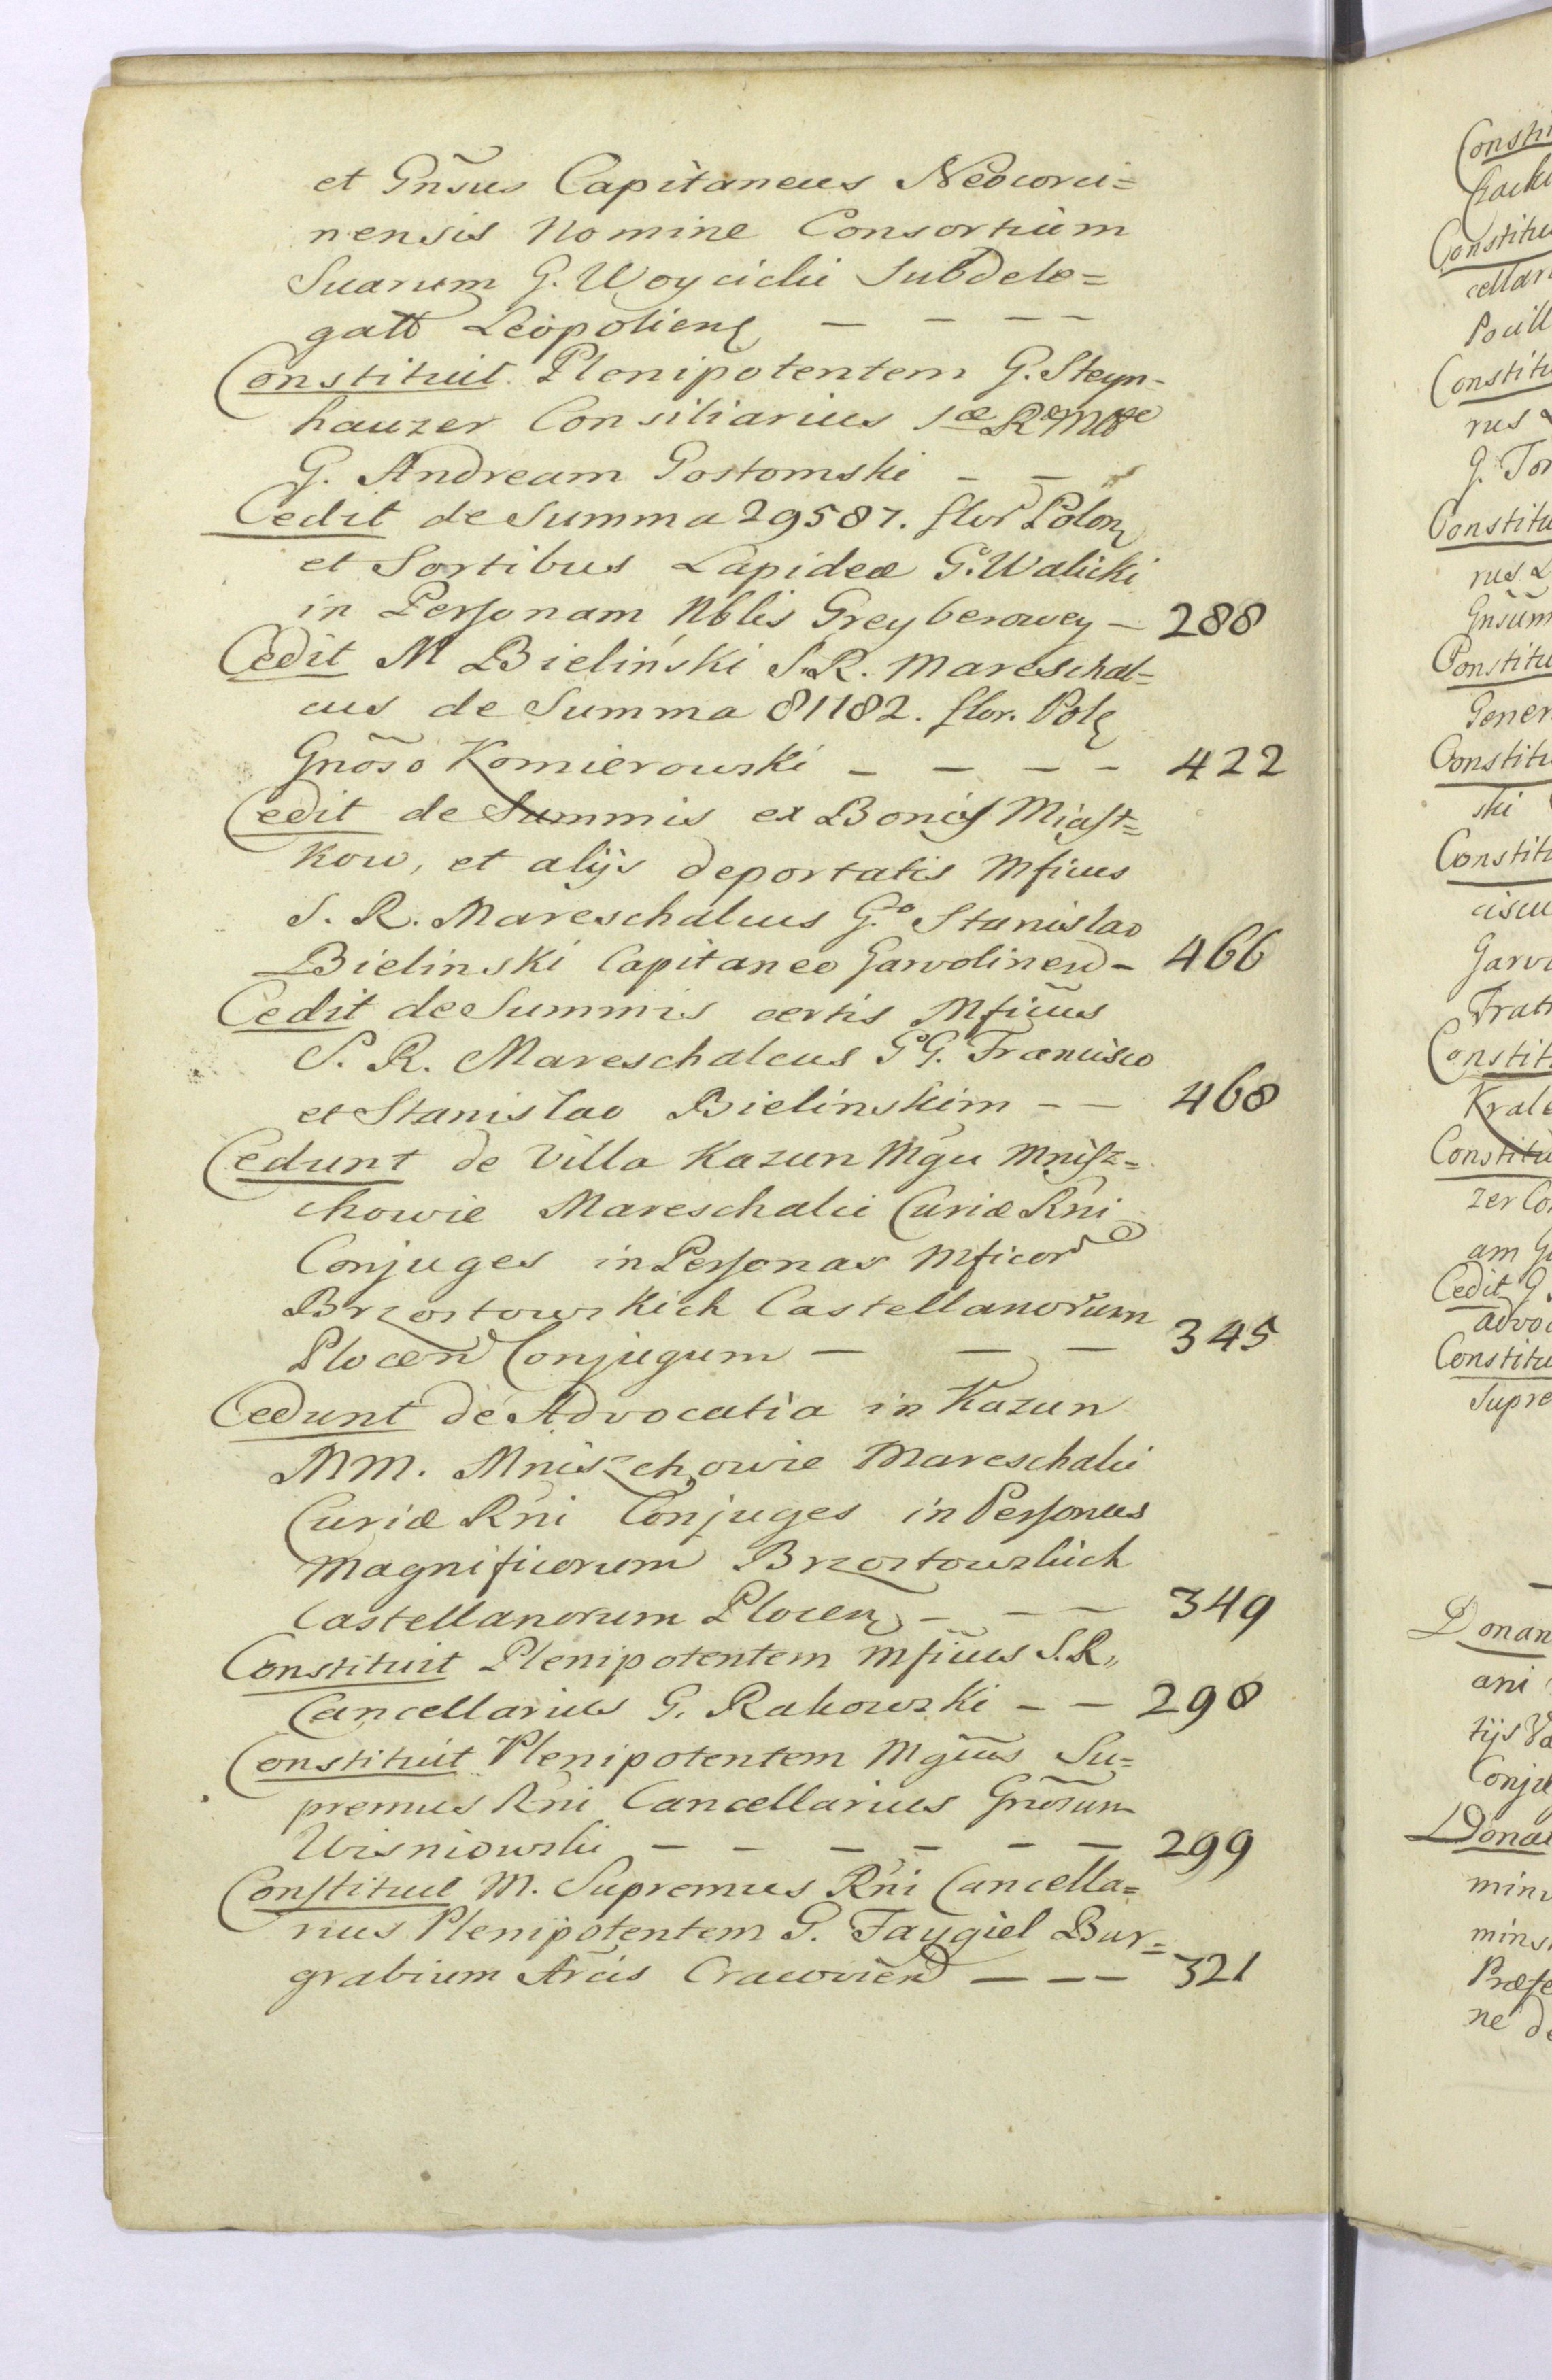 et Gnsus Capitaneus Neocorci=
nensis Nomine Consortium
Suarum G. Woycicki Subdele=
gatt Leopoliens
Constituit Plenipotentem G. Steyn-
hauzer Consiliarius sæ Ræ Mttæ
G. Andream Gostomski
Cedit de Summa 29587. flor Polon
et Sortibus Lapideæ G. Walicki
in Personam Nblis Greyberowey 288
Cedit M Bieliński S. R. Mareschal=
cus de Summa 81182. flor. Pol
Gnõso Komierowski 422
Cedit de Summis ex Bonis Miast=
kow, et alijs deportatis Mficus
S. R. Mareschalcus G.o Stanislao
Bielinski Capitaneo Garvolinen 466
Cedit de Summis certis Mficus
S. R. Mareschalcus GG. Francisco
et Stanislao Bielinskim 468
Cedunt de Villa Kazun Mgci Mnisz=
chowie Mareschalci Curiæ Rni
Conjuges in Personas Mficor
Brzostowskich Castellanorum
Plocen Conjugum 345
Cedunt de Advocatia in Kazun
MM. Mniszchowie Mareschalci
Curiæ Rni Conjuges in Personas
Magnificorum Brzostowskich
Castellanorum Plocen 349
Constituit Plenipotentem Mficus S. R.
Cancellarius G. Rakowski 298
Constituit Plenipotentem Mgcus Su=
premus Rni Cancellarius Gnosum
Wisniowski 299
Constituit M. Supremus Rni Cancella=
rius Plenipotentem G. Faygiel Bur=
grabium Arcis Cracovien 321
Constitu
cellar
Constitu
rus
Constitu
rus
Gnsum
Constitu
Gener
Constitu
ski
Constitu
Garv
Fratr
Constit
Kral
Constitu
zer Co
am
Cedit G
advoc
Constitu
Supre
Donan
ani
tijs
Conju
Donat
mins
ne de